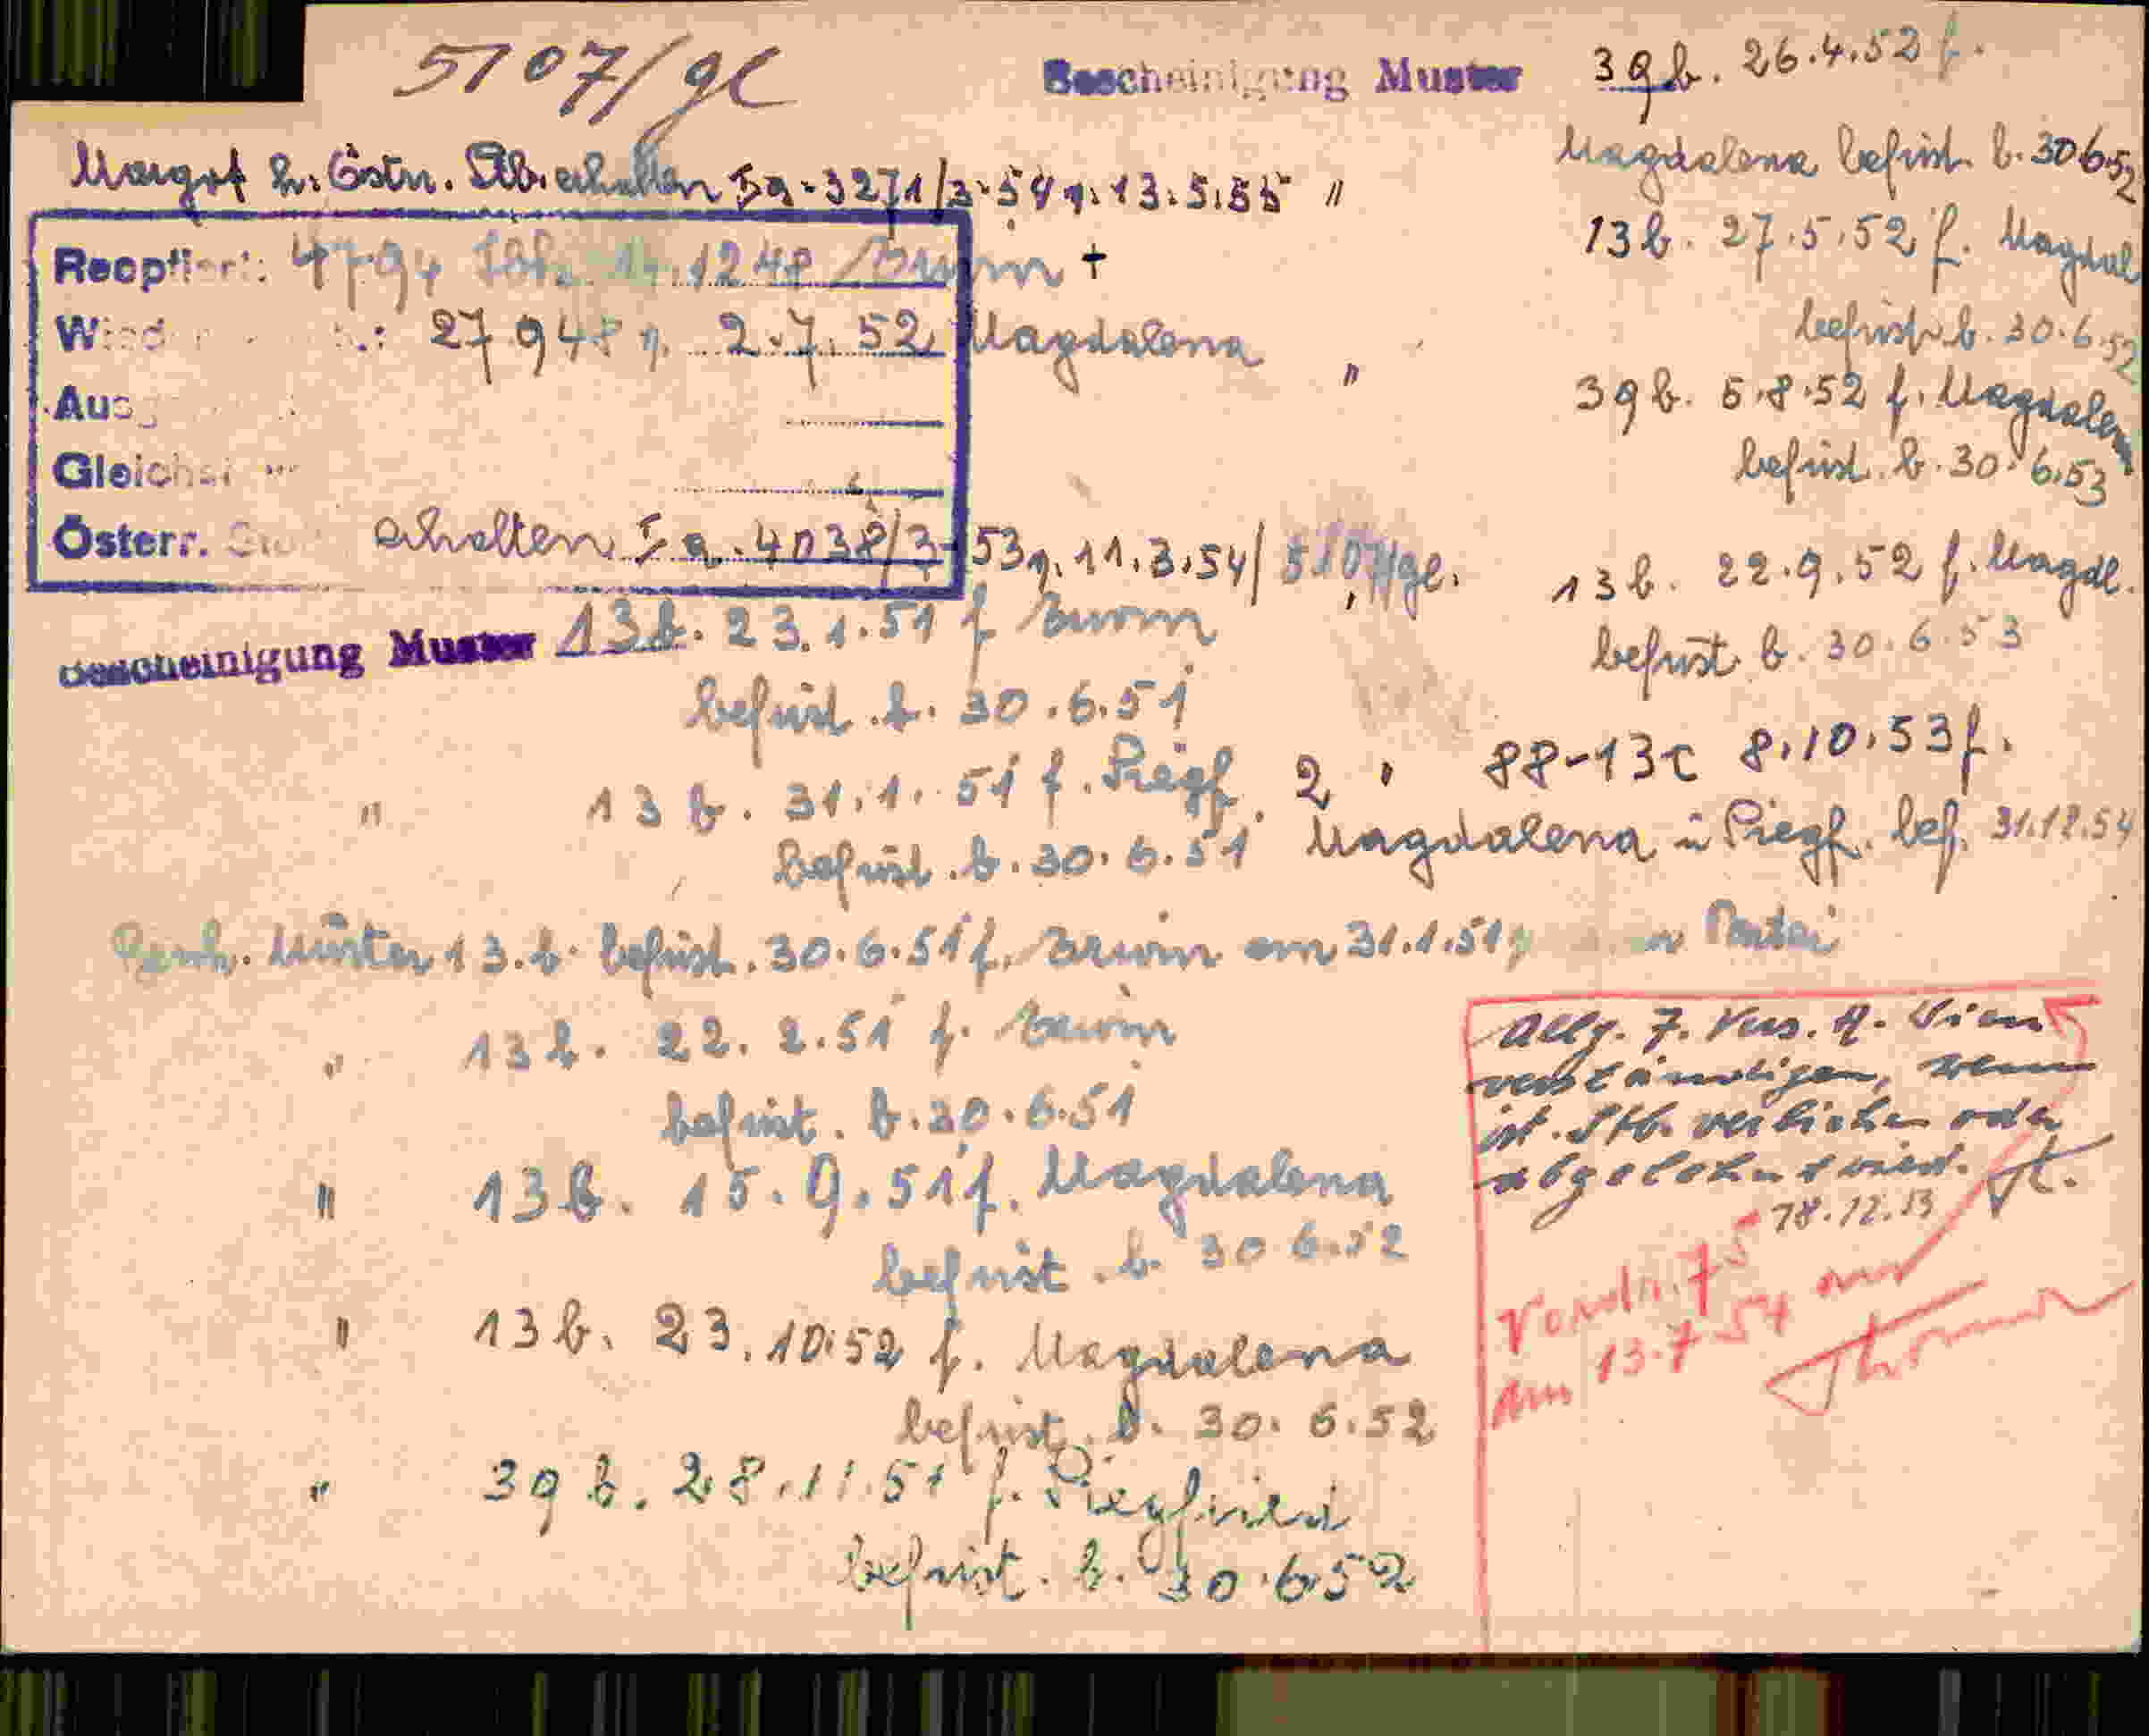 5107/gl
Bescheinigung Muster 39b. 26.4.52 f.
Magdalena befrist. b. 30.6.52
Margot h. Östr. Stb. erhalten Ia-3271/3-54 v. 13.5.55 "
13b. 27.5.52 f. Magdal
befrist. b. 30.6.52
Reoptiert: 4794 14.12.48 / Erwin +
27948 v. 2.7.52 Magdalena "
39b. 5.8.52 f. Magdalena
befrist. b. 30.6.53
Österr. erhalten Ia. 4038/3-53 v. 11.3.54/ 5107/gl.
13b. 22.9.52 f. Magdl.
befrist. b. 30.6.53
Bescheinigung Muster 13b. 23.1.51 f Erwin
befrist. b. 30.6.51
" 13b. 31.1.51 f. Siegf.
befrist. b. 30.6.51
2 " 88-13c 8.10.53 f.
Magdalena u Siegf. bef. 31.12.54
Muster 13.b. befrist. 30.6.51 f. Erwin am 31.1.51 Partei
" 13b. 22.2.51 f. Erwin
befrist. b. 30.6.51
" 13b. 15.9.51 f. Magdalena
befrist. b. 30.6.52
" 13b. 23.10.52 f. Magdalena
befrist. b. 30.6.52
" 39b. 28.11.51 f. Siegfried
befrist. b. 30.6.52
Allg. Wien
verständigen, wenn
öst. Stb. verliehen oder
abgelehnt wird.
18.12.53
am 13.7.54